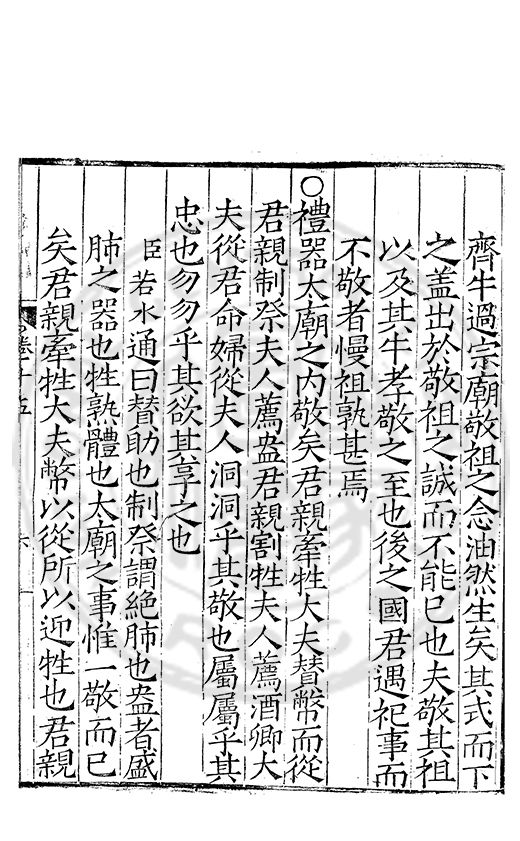 齊牛過宗廟敬祖之念油然生矣其式而下
之盖出於敬祖之誠而不能已也夫敬其祖
以及其牛孝敬之至也後之國君遇祀事而
不敬者慢祖孰甚焉
○禮器太廟之内敬矣君親牽牲大夫贊幣而從
君親制祭夫人薦盎君親割牲夫人薦酒卿大
夫從君命婦從夫人洞洞乎其敬也屬屬乎其
忠也勿勿乎其欲其享之也
臣若水通曰賛助也制祭謂絶肺也盎者盛
肺之器也牲熟體也太廟之事惟一敬而已
矣君親牽牲大夫幣以從所以迎牲也君親
卷十五
六